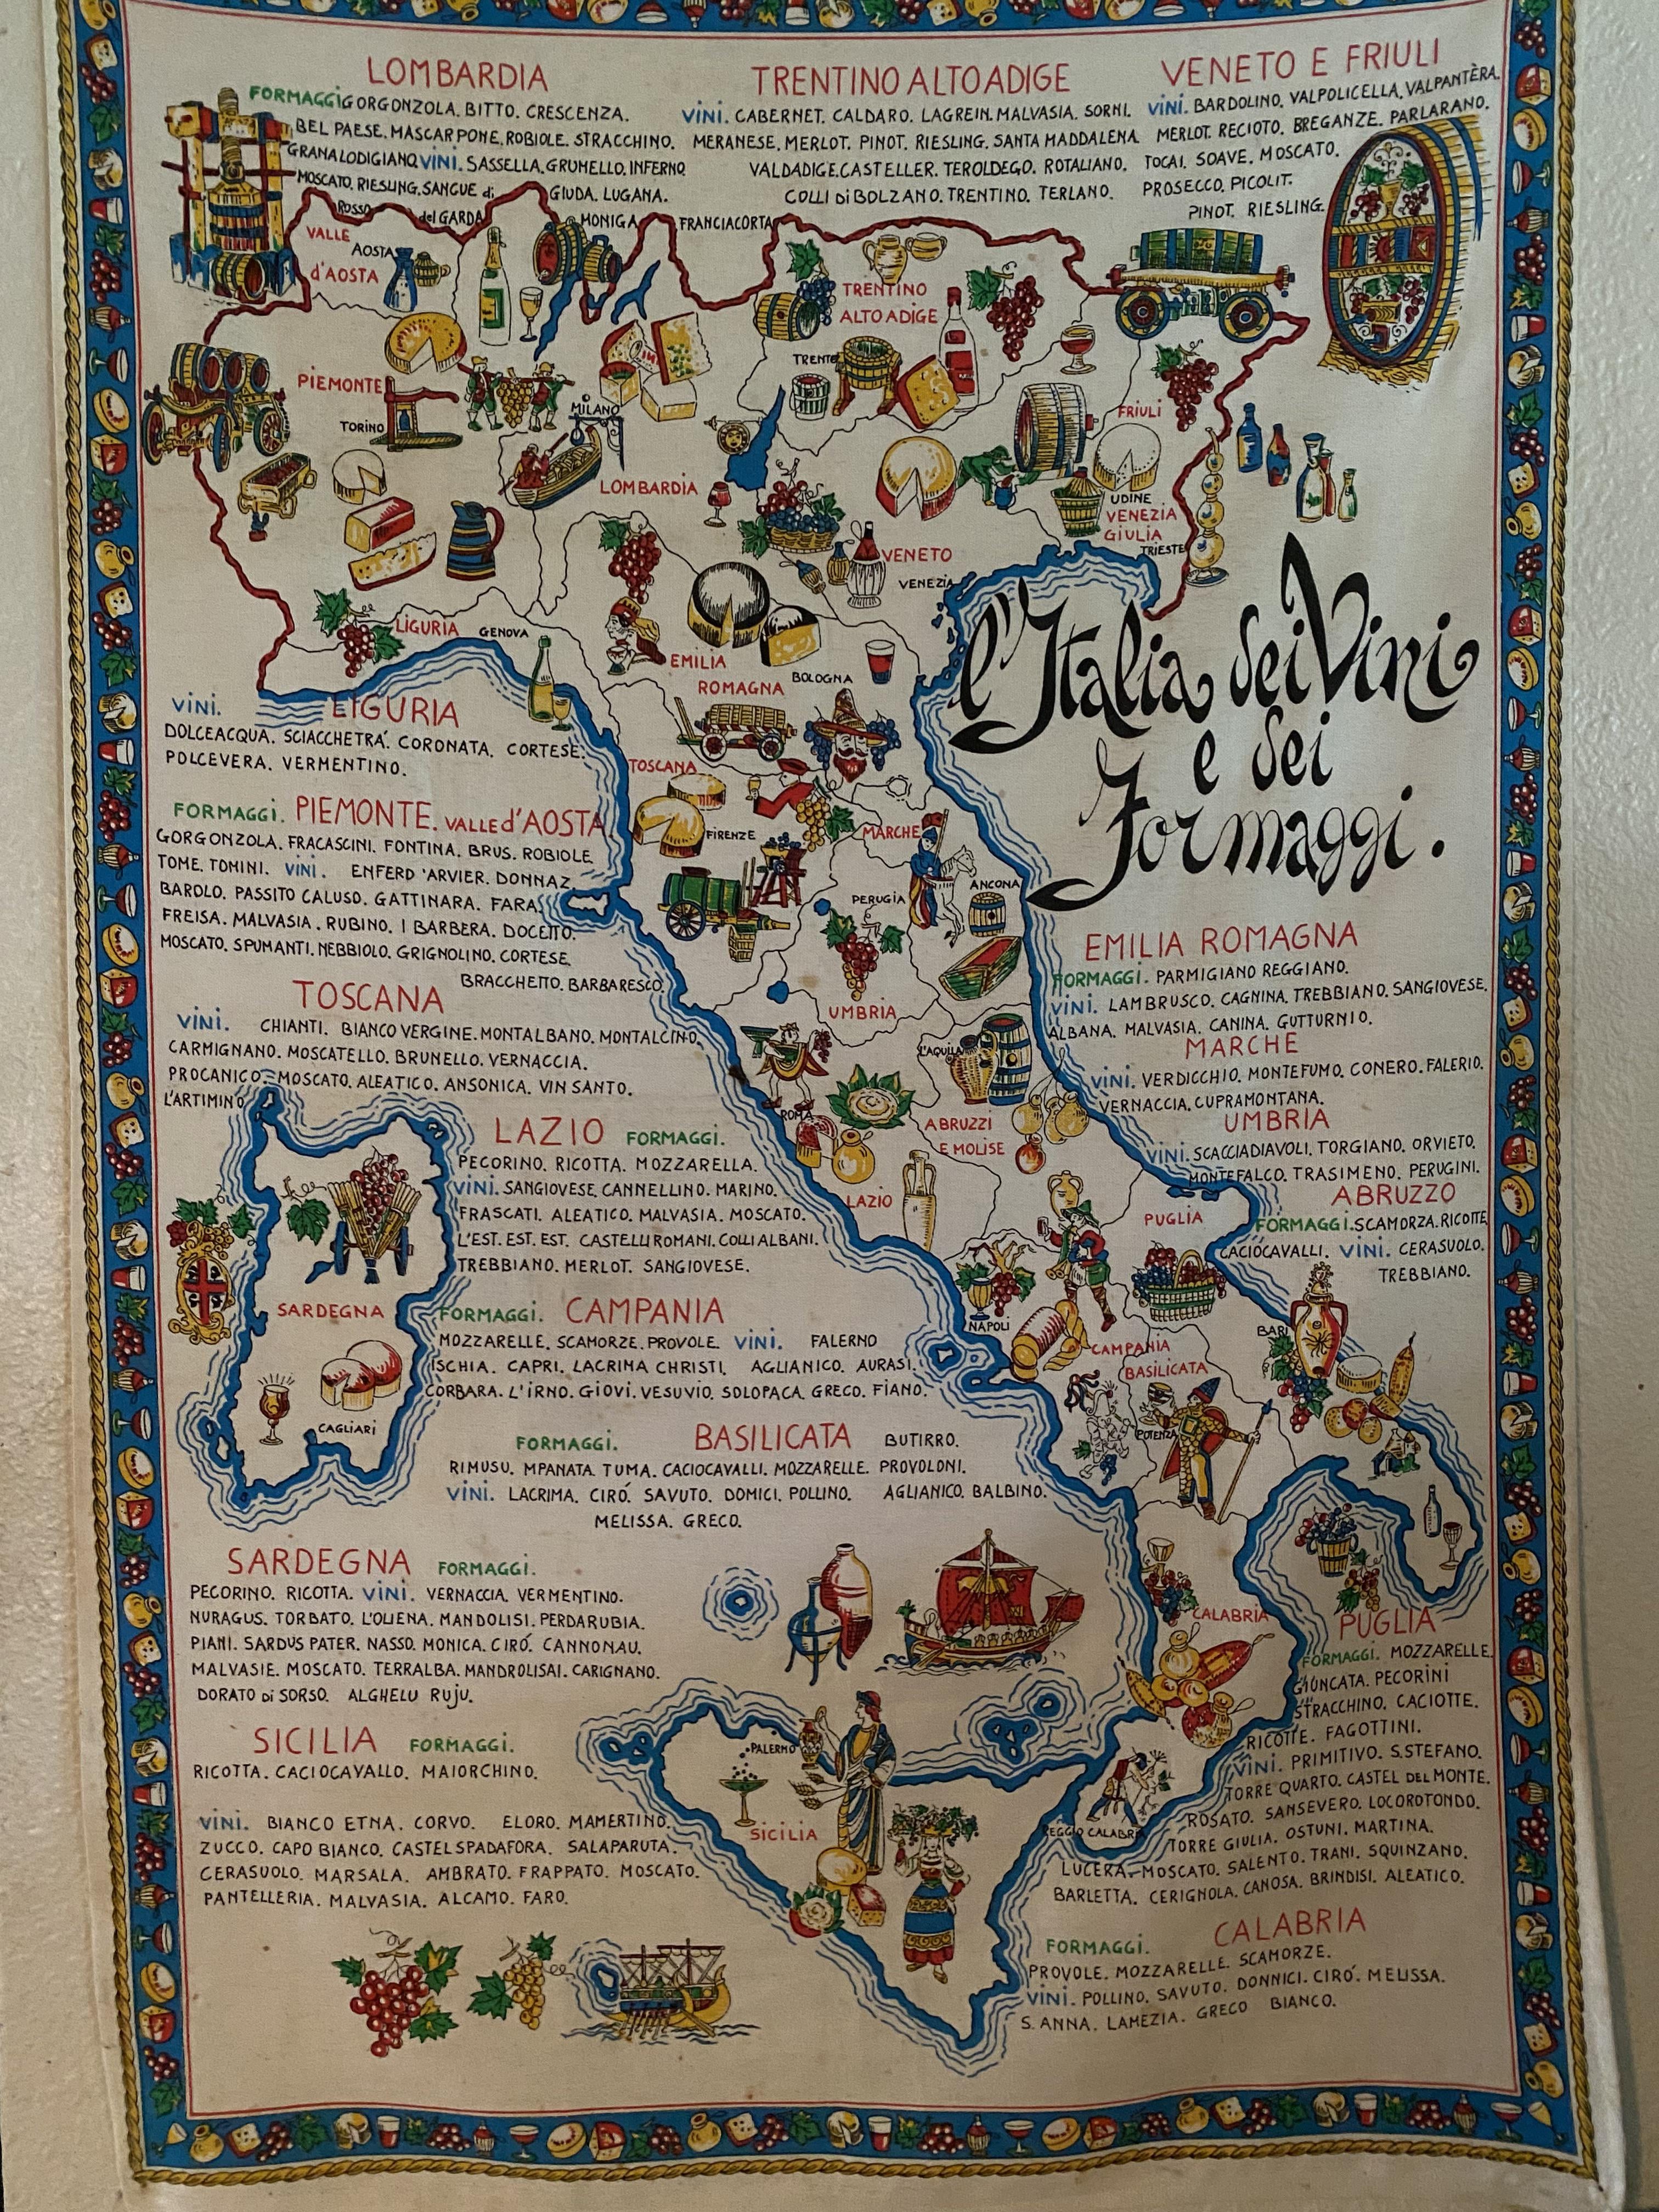 LOMBARDIA
FORMAGGI GORGONZOLA. BITTO. CRESCENZA.
BEL PAESE. MASCARPONE. ROBIOLE. STRACCHINO.
GRANA LODIGIANO. VINI. SASSELLA. GRUMELLO. INFERNO
MOSCATO. RIESLING. SANGUE di GIUDA. LUGANA.
ROSSO del GARDA MONIGA FRANCIACORTA
TRENTINO ALTO ADIGE
VINI. CABERNET. CALDARO. LAGREIN. MALVASIA. SORNI.
MERANESE. MERLOT. PINOT. RIESLING. SANTA MADDALENA
VALDADIGE. CASTELLER. TEROLDEGO. ROTALIANO.
COLLI Di BOLZANO. TRENTINO. TERLANO.
VENETO E FRIULI
VINI. BARDOLINO. VALPOLICELLA. VALPANTÈRA.
MERLOT. RECIOTO. BREGANZE. PARLARANO.
TOCAI. SOAVE. MOSCATO.
PROSECCO. PICOLIT.
PINOT. RIESLING.
VALLE
d'AOSTA
AOSTA
TRENTINO
ALTO ADIGE
TRENTO
PIEMONTE
TORINO
MILANO
LOMBARDIA
FRIULI
UDINE
VENEZIA
GIULIA
TRIESTE
VENETO
VENEZIA
LIGURIA
GENOVA
EMILIA
ROMAGNA
BOLOGNA
l'Italia dei Vini
e dei
Formaggi.
VINI. LIGURIA
DOLCEACQUA. SCIACCHETRÁ. CORONATA. CORTESE.
POLCEVERA. VERMENTINO.
TOSCANA
FIRENZE
MARCHE
ANCONA
PERUGIA
UMBRIA
FORMAGGI. PIEMONTE. VALLE d'AOSTA
GORGONZOLA. FRACASCINI. FONTINA. BRUS. ROBIOLE
TOME. TOMINI. VINI. ENFERD 'ARVIER. DONNAZ.
BAROLO. PASSITO CALUSO. GATTINARA. FARA.
FREISA. MALVASIA. RUBINO. I BARBERA. DOCETTO.
MOSCATO. SPUMANTI. NEBBIOLO. GRIGNOLINO. CORTESE.
BRACCHETTO. BARBARESCO.
TOSCANA
VINI. CHIANTI. BIANCO VERGINE. MONTALBANO. MONTALCINO.
CARMIGNANO. MOSCATELLO. BRUNELLO. VERNACCIA.
PROCANICO. MOSCATO. ALEATICO. ANSONICA. VIN SANTO.
L'ARTIMINO
EMILIA ROMAGNA
FORMAGGI. PARMIGIANO REGGIANO.
VINI. LAMBRUSCO. CAGNINA. TREBBIANO. SANGIOVESE.
ALBANA. MALVASIA. CANINA. GUTTURNIO.
MARCHE
VINI. VERDICCHIO. MONTEFUMO. CONERO. FALERIO.
VERNACCIA. CUPRAMONTANA.
UMBRIA
VINI. SCACCIADIAVOLI. TORGIANO. ORVIETO.
MONTEFALCO. TRASIMENO. PERUGINI.
ABRUZZO
FORMAGGI. SCAMORZA. RICOTTE
CACIOCAVALLI. VINI. CERASUOLO.
TREBBIANO.
L'AQUILA
ROMA
ABRUZZI
E MOLISE
LAZIO
PUGLIA
NAPOLI
CAMPANIA
BARI
BASILICATA
POTENZA
LAZIO FORMAGGI.
PECORINO. RICOTTA. MOZZARELLA.
VINI. SANGIOVESE. CANNELLINO. MARINO.
FRASCATI. ALEATICO. MALVASIA. MOSCATO.
L'EST. EST. EST. CASTELLI ROMANI. COLLI ALBANI.
TREBBIANO. MERLOT. SANGIOVESE.
SARDEGNA
CAGLIARI
FORMAGGI. CAMPANIA
MOZZARELLE. SCAMORZE. PROVOLE. VINI. FALERNO
ISCHIA. CAPRI. LACRIMA CHRISTI. AGLIANICO. AURASI.
CORBARA. L'IRNO. GIOVI. VESUVIO. SOLOPACA. GRECO. FIANO.
FORMAGGI. BASILICATA BUTIRRO.
RIMUSU. MPANATA. TUMA. CACIOCAVALLI. MOZZARELLE. PROVOLONI.
VINI. LACRIMA. CIRÓ. SAVUTO. DOMICI. POLLINO. AGLIANICO. BALBINO.
MELISSA. GRECO.
SARDEGNA FORMAGGI.
PECORINO. RICOTTA. VINI. VERNACCIA. VERMENTINO.
NURAGUS. TORBATO. L'OLIENA. MANDOLISI. PERDARUBIA.
PIANI. SARDUS PATER. NASSO. MONICA. CIRÓ. CANNONAU.
MALVASIE. MOSCATO. TERRALBA. MANDROLISAI. CARIGNANO.
DORATO di SORSO. ALGHELU RUJU.
CALABRIA
REGGIO CALABRIA
PUGLIA
FORMAGGI. MOZZARELLE.
GIUNCATA. PECORINI
STRACCHINO. CACIOTTE.
RICOTTE. FAGOTTINI.
VINI. PRIMITIVO. S.STEFANO.
TORRE QUARTO. CASTEL DEL MONTE.
ROSATO. SANSEVERO. LOCOROTONDO.
TORRE GIULIA. OSTUNI. MARTINA.
LUCERA. MOSCATO. SALENTO. TRANI. SQUINZANO.
BARLETTA. CERIGNOLA. CANOSA. BRINDISI. ALEATICO.
SICILIA FORMAGGI.
RICOTTA. CACIOCAVALLO. MAIORCHINO.
VINI. BIANCO ETNA. CORVO. ELORO. MAMERTINO.
ZUCCO. CAPO BIANCO. CASTEL SPADAFORA. SALAPARUTA.
CERASUOLO. MARSALA. AMBRATO. FRAPPATO. MOSCATO.
PANTELLERIA. MALVASIA. ALCAMO. FARO.
PALERMO
SICILIA
FORMAGGI. CALABRIA
PROVOLE. MOZZARELLE. SCAMORZE.
VINI. POLLINO. SAVUTO. DONNICI. CIRÓ. MELISSA.
S. ANNA. LAMEZIA. GRECO BIANCO.